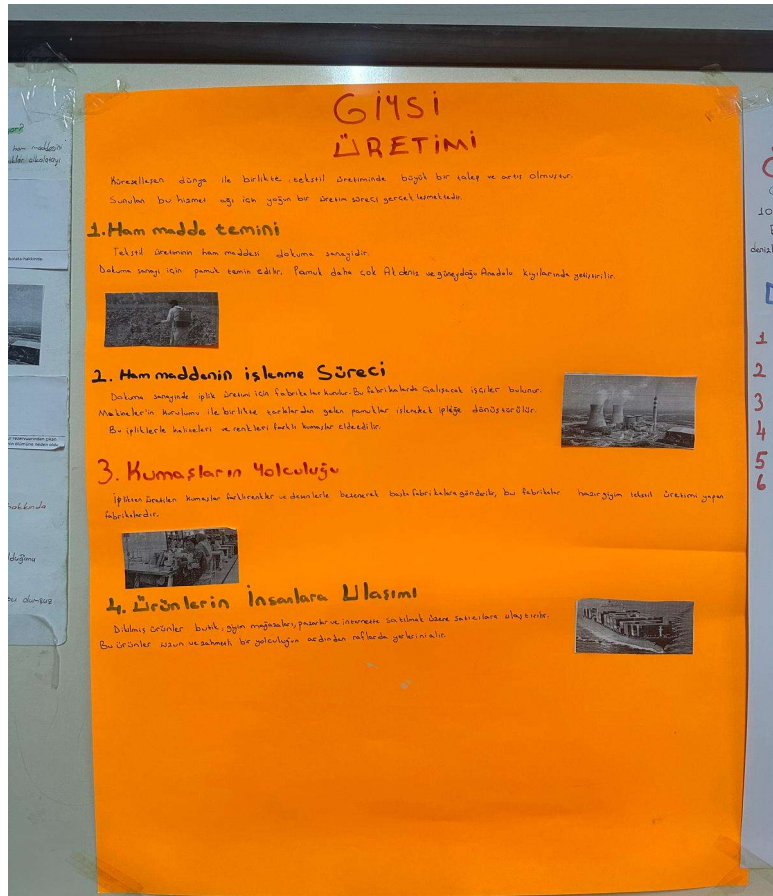 GİYSİ
ÜRETİMİ
Küreselleşen dünya ile birlikte tekstil üretiminde büyük bir talep ve artış olmuştur.
Sunulan bu hizmet ağı için yoğun bir üretim süreci gerçekleşmektedir.
1. Ham madde temini
Tekstil üretiminin ham maddesi dokuma sanayidir.
Dokuma sanayi için pamuk temin edilir. Pamuk daha çok Akdeniz ve güneydoğu Anadolu kıyılarında yetiştirilir.
2. Ham maddenin işlenme Süreci
Dokuma sanayinde iplik üretimi için fabrikalar kurulur. Bu fabrikalarda Çalışacak işçiler bulunur.
Makineler'in kurulumu ile birlikte tarlalardan gelen pamuklar işlenerek ipliğe dönüştürülür.
Bu ipliklerle kaliteleri ve renkleri farklı kumaşlar elde edilir.
3. Kumaşların Yolculuğu
İplikten üretilen kumaşlar farklı renkler ve desenlerle bezenerek başka fabrikalara gönderilir, bu fabrikalar hazır giyim tekstil üretimi yapan
fabrikalardır.
4. Ürünlerin İnsanlara Ulaşımı
Dikilmiş ürünler butik, giyim mağazaları, pazarlar ve internette satılmak üzere satıcılara ulaştırılır.
Bu ürünler uzun ve zahmetli bir yolculuğun ardından raflarda yerlerini alır.
ham maddenin
hakkında
olduğunu
olumsuz
10
1
2
3
4
5
6